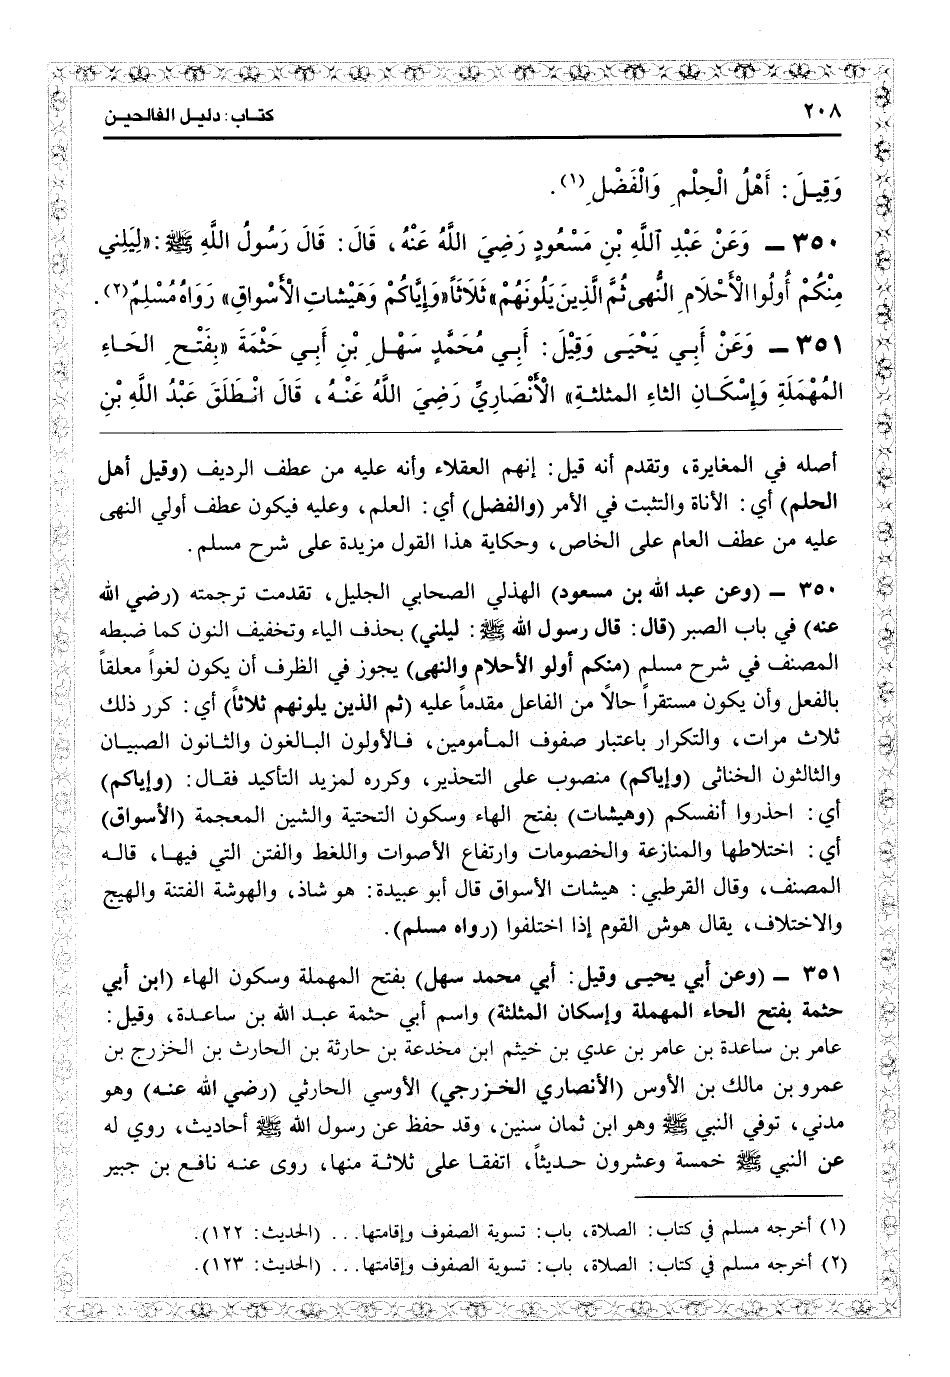 ٢٠٨ كتاب: دليل الفالحين
وَقِيلَ: أَهْلُ الْحِلْمِ وَالْفَضْلِ(١).
٣٥٠ ــ وَعَنْ عَبْدِ اللَّهِ بْنِ مَسْعُودٍ رَضِيَ اللَّهُ عَنْهُ، قَالَ: قَالَ رَسُولُ اللَّهِ ﷺ: «لِيَلِنِي
مِنْكُمْ أُولُوا الْأَحْلَامِ النُّهى ثُمَّ الَّذِينَ يَلُونَهُمْ» ثَلَاثَاً «وَإِيَّاكُمْ وَهَيْشَاتِ الْأَسْوَاقِ» رَوَاهُ مُسْلِمٌ(٢).
٣٥١ ــ وَعَنْ أَبِي يَحْيَى وَقِيْلَ: أَبِي مُحَمَّدٍ سَهْلِ بْنِ أَبِي حَثْمَةَ «بِفَتْحِ الحَاءِ
المُهْمَلَةِ وَإِسْكَانِ الثاءِ المثلثةِ» الْأَنْصَارِيِّ رَضِيَ اللَّهُ عَنْهُ، قَالَ انْطَلَقَ عَبْدُ اللَّهِ بْنِ
أصله في المغايرة، وتقدم أنه قيل: إنهم العقلاء وأنه عليه من عطف الرديف (وقيل أهل
الحلم) أي: الأناة والتثبت في الأمر (والفضل) أي: العلم، وعليه فيكون عطف أولي النهى
عليه من عطف العام على الخاص، وحكاية هذا القول مزيدة على شرح مسلم.
٣٥٠ ــ (وعن عبد الله بن مسعود) الهذلي الصحابي الجليل، تقدمت ترجمته (رضي الله
عنه) في باب الصبر (قال: قال رسول الله ﷺ: ليلني) بحذف الياء وتخفيف النون كما ضبطه
المصنف في شرح مسلم (منكم أولو الأحلام والنهى) يجوز في الظرف أن يكون لغواً معلقاً
بالفعل وأن يكون مستقراً حالاً من الفاعل مقدماً عليه (ثم الذين يلونهم ثلاثاً) أي: كرر ذلك
ثلاث مرات، والتكرار باعتبار صفوف المأمومين، فالأولون البالغون والثانون الصبيان
والثالثون الخناثى (وإياكم) منصوب على التحذير، وكرره لمزيد التأكيد فقال: (وإياكم)
أي: احذروا أنفسكم (وهيشات) بفتح الهاء وسكون التحتية والشين المعجمة (الأسواق)
أي: اختلاطها والمنازعة والخصومات وارتفاع الأصوات واللغط والفتن التي فيها، قاله
المصنف، وقال القرطبي: هيشات الأسواق قال أبو عبيدة: هو شاذ، والهوشة الفتنة والهيج
والاختلاف، يقال هوش القوم إذا اختلفوا (رواه مسلم).
٣٥١ ــ (وعن أبي يحيى وقيل: أبي محمد سهل) بفتح المهملة وسكون الهاء (ابن أبي
حثمة بفتح الحاء المهملة وإسكان المثلثة) واسم أبي حثمة عبد الله بن ساعدة، وقيل:
عامر بن ساعدة بن عامر بن عدي بن خيثم ابن مخدعة بن حارثة بن الحارث بن الخزرج بن
عمرو بن مالك بن الأوس (الأنصاري الخزرجي) الأوسي الحارثي (رضي الله عنه) وهو
مدني، توفي النبي ﷺ وهو ابن ثمان سنين، وقد حفظ عن رسول الله ﷺ أحاديث، روي له
عن النبي ﷺ خمسة وعشرون حديثاً، اتفقا على ثلاثة منها، روى عنه نافع بن جبير
(١) أخرجه مسلم في كتاب: الصلاة، باب: تسوية الصفوف وإقامتها... (الحديث: ١٢٢).
(٢) أخرجه مسلم في كتاب: الصلاة، باب: تسوية الصفوف وإقامتها... (الحديث: ١٢٣).